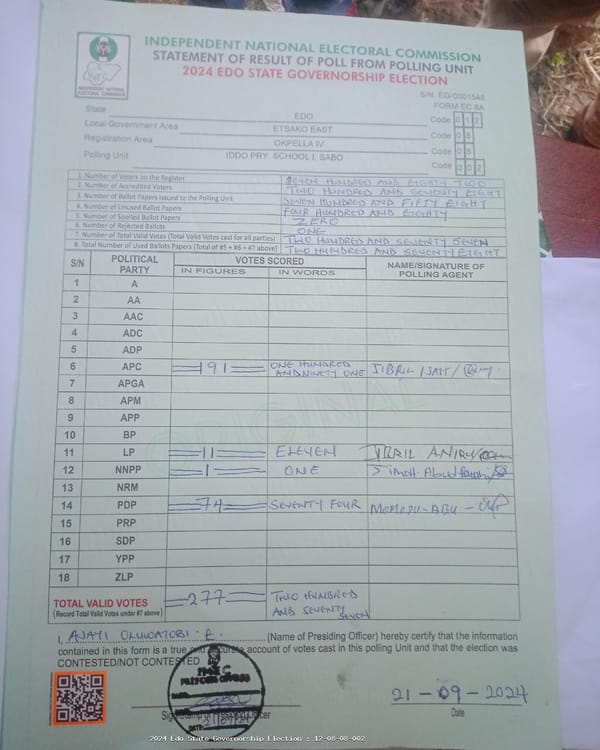 INDEPENDENT NATIONAL ELECTORAL COMMISSION
STATEMENT OF RESULT OF POLL FROM POLLING UNIT
2024 EDO STATE GOVERNORSHIP ELECTION
INEC
INDEPENDENT NATIONAL
ELECTORAL COMMISSION
S/N: EG/0001548
FORM EC 8A
State EDO Code 0 1 2
Local Government Area ETSAKO EAST Code 0 8
Registration Area OKPELLA IV Code 0 8
Polling Unit IDDO PRY. SCHOOL I, SABO Code 0 0 2
1. Number of Voters on the Register SEVEN HUNDRED AND EIGHTY TWO
2. Number of Accredited Voters TWO HUNDRED AND SEVENTY EIGHT
3. Number of Ballot Papers Issued to the Polling Unit SEVEN HUNDRED AND FIFTY EIGHT
4. Number of Unused Ballot Papers FOUR HUNDRED AND EIGHTY
5. Number of Spoiled Ballot Papers ZERO
6. Number of Rejected Ballots ONE
7. Number of Total Valid Votes (Total Valid Votes cast for all parties) TWO HUNDRED AND SEVENTY SEVEN
8. Total Number of Used Ballots Papers (Total of #5 + #6 + #7 above) TWO HUNDRED AND SEVENTY EIGHT
S/N POLITICAL PARTY VOTES SCORED NAME/SIGNATURE OF POLLING AGENT
IN FIGURES IN WORDS
1 A
2 AA
3 AAC
4 ADC
5 ADP
6 APC 191 ONE HUNDRED AND NINETY ONE JIBRIL
7 APGA
8 APM
9 APP
10 BP
11 LP 11 ELEVEN
12 NNPP 1 ONE
13 NRM
14 PDP 74 SEVENTY FOUR MOMODU-ABU
15 PRP
16 SDP
17 YPP
18 ZLP
TOTAL VALID VOTES 277 TWO HUNDRED AND SEVENTY SEVEN
(Record Total Valid Votes under #7 above)
I, AJAYI OLUWATOBI E. (Name of Presiding Officer) hereby certify that the information
contained in this form is a true and accurate account of votes cast in this polling Unit and that the election was
CONTESTED/NOT CONTESTED
INEC
PRESIDING OFFICER
DATE 21/09/24
21-09-2024
Date
2024 Edo State Governorship Election : 12-08-08-002